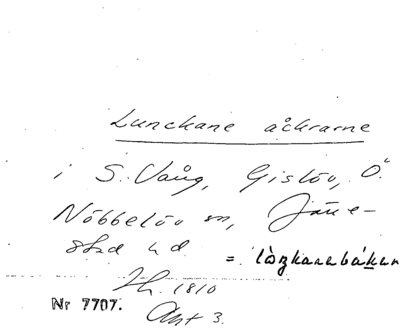 Lunckane åckrarne
i S. Vång, Gislöv, Ö.
Nöbbelöv sn, Järre-
stad hd = låŋkanabákan
Zh. 1810
Nr 7707. Akt 3.